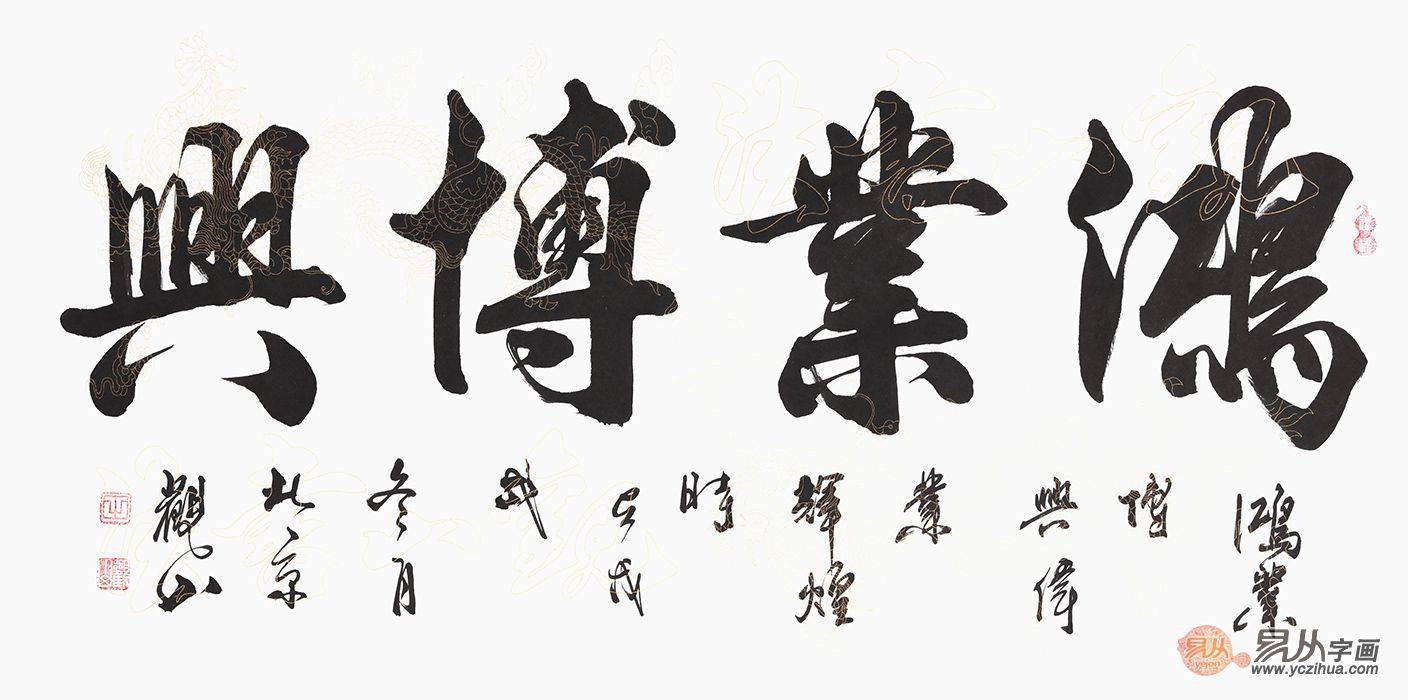 鴻業博興
鴻業
博
興偉
業
輝煌
時
戌
年
冬月
北京
觀山
易从
yejon
易从字画
www.yczihua.com